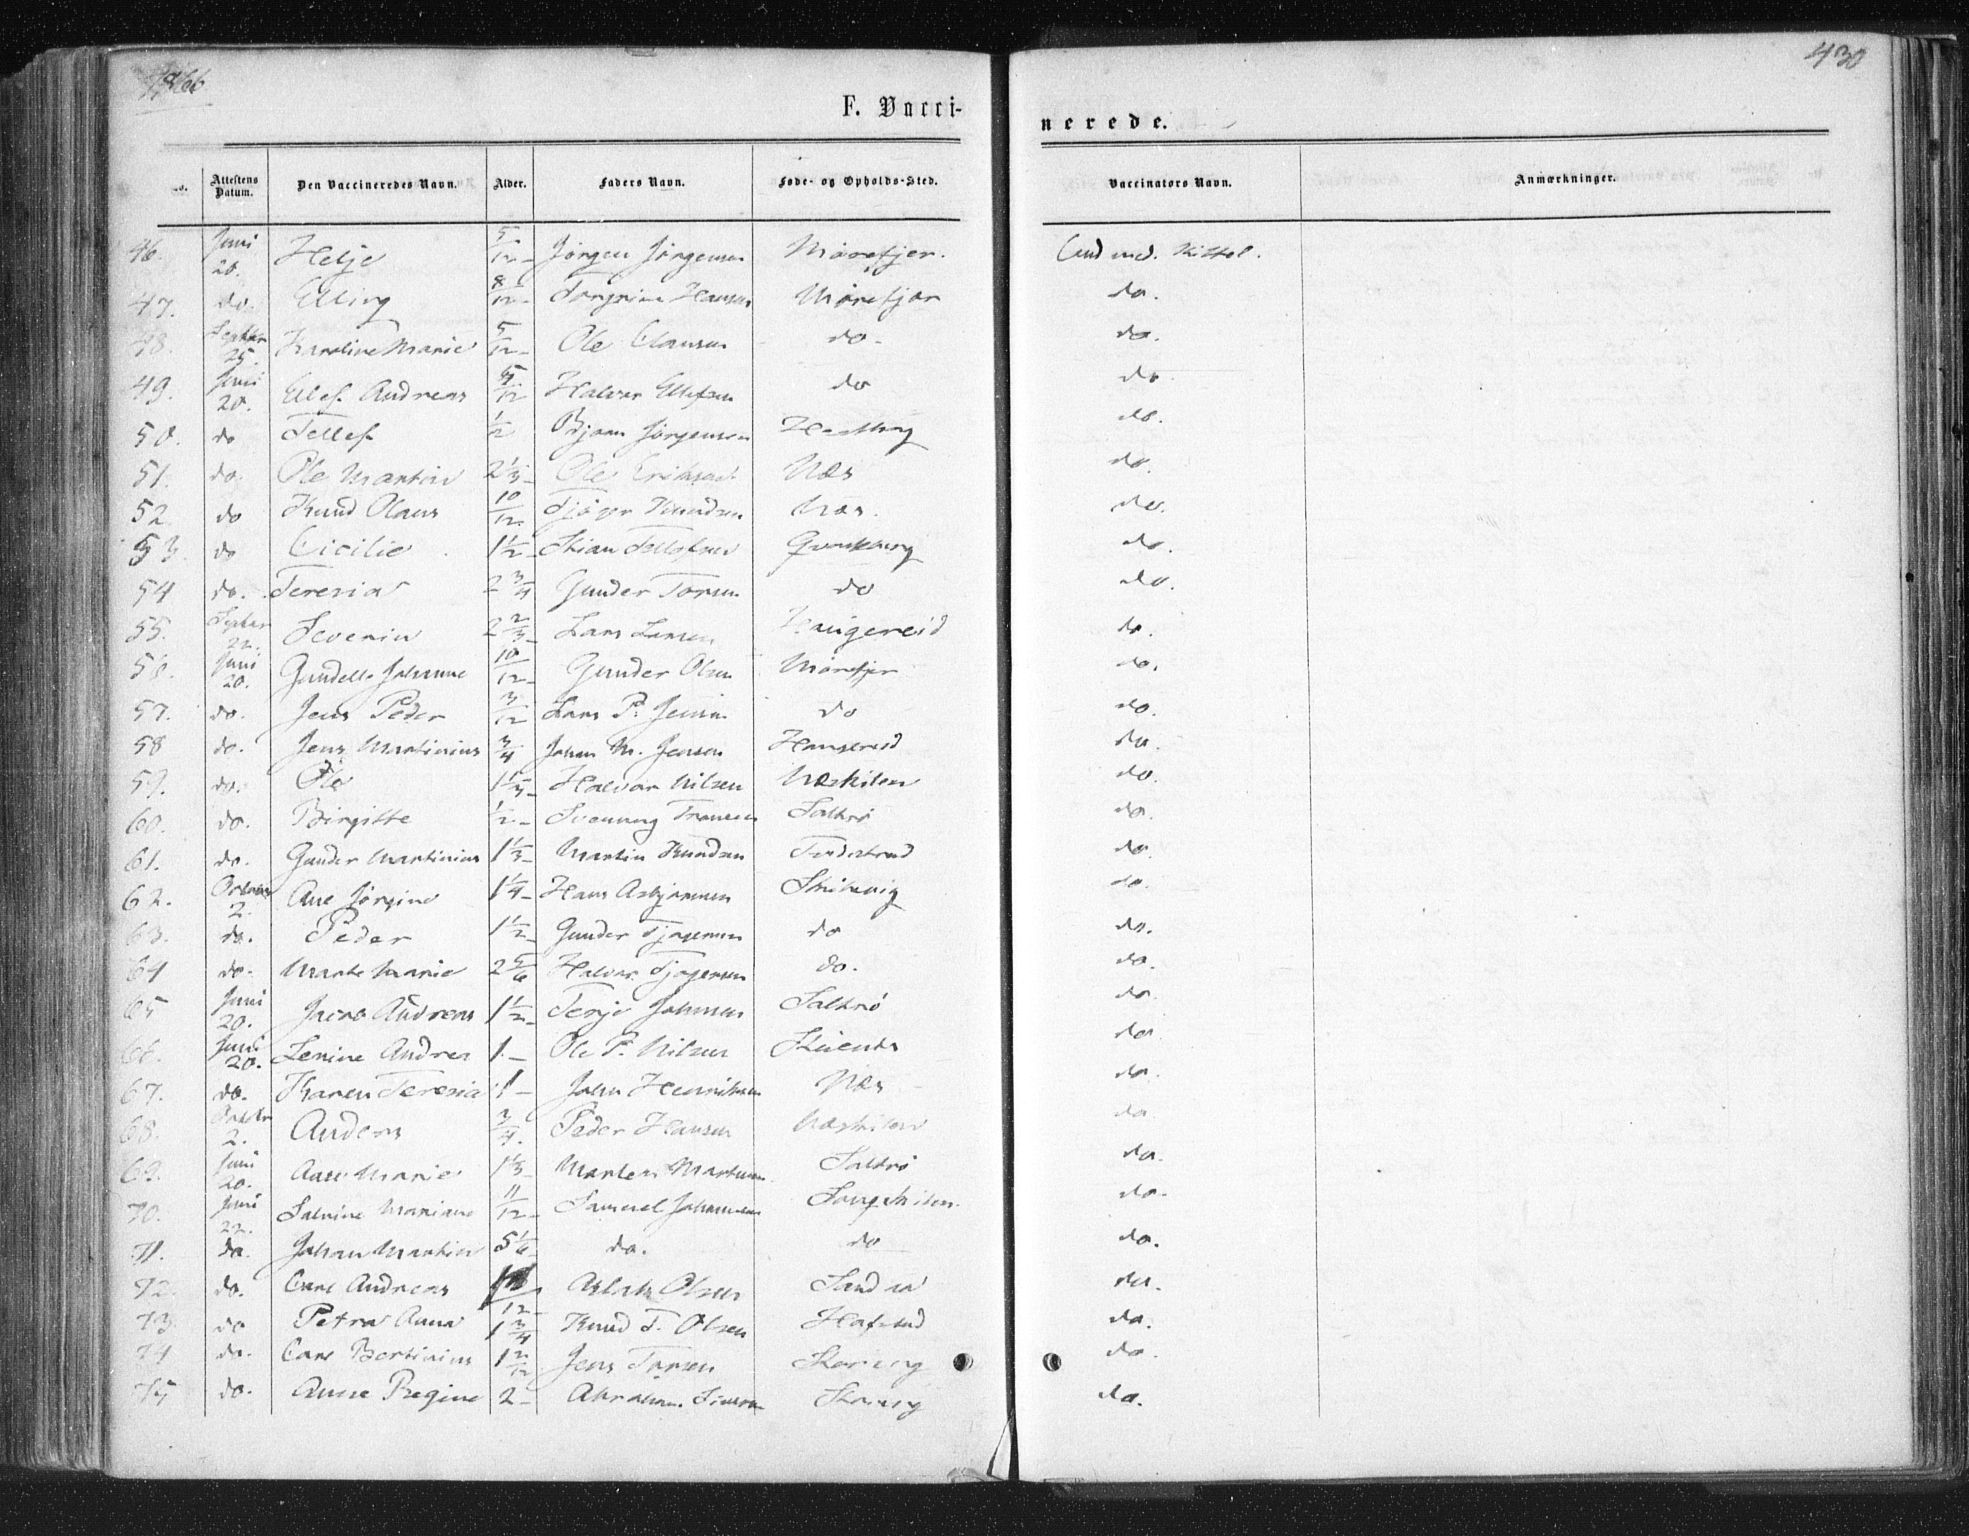 1866
430
F. Vacci-
nerede.
No. Attestens Datum. Den Vaccineredes Navn. Alder. Faders Navn. Føde- og Opholds-Sted. Vaccinators Navn. Anmærkninger.
46. Juni 20. Helje 5/12 Jørgen Jørgensen Mørefjer. Cand med. Kittel.
47. do. Elling 8/12 Hansen Mørefjær do.
48. Septbr 25. Karoline Marie 5/12 Ole Clausen do. do.
49. Juni 20. Ellef Andreas /12 Halvor Ellefsen do do.
50. do Tellef 1/2 Bjørn Jørgensen do.
51. do. Ole Martin 2 1/3 Ole Eriksen Næs do.
52. do Knud Olaus 10/12 Tjøger Knudsen Næs. do.
53. do Cicilie 1 1/2 Stian Tellefsen do.
54 do. Teresia 2 3/4 Gunder Torsen do do.
55. Septbr 22. Severin 2 2/3 Lars Larsen Haugereid do.
56. Juni 20. Gundelle Johanne 10/12 Gunder Olsen Mørefjer do.
57. do. Jens Peder 3/12 Lars P. Jensen do do.
58 do. Jens Martinius 3/4 Johan M. Jensen Haugereid do.
59. do. Ole 1 1/3 Halvor Nilsen Næskilen do.
60. do. Birgitte 1/2 Svenning Saltrø do.
61. do. Gunder Martinius 1 1/3 Martin Knudsen do.
62. Octover 2. Ane Jørgine 1 1/4 Hans Asbjørnsen do.
63. do. Peder 1 1/2 Gunder Tjøgersen do do.
64 do. Marte Marie 2 5/6 Halvor Tjøgersen do. do.
65 Juni 20. Jacob Andreas 1 1/2 Terje Johnsen Saltrø do.
66. Juni 20. Lenine Andrea 1. Ole P. Nilsen do.
67. do. Karen Teresia 1 John Henriksen Næs do.
68. Octobr 2. Anders 3/4. Peder Hansen Næskilen do
69. Juni 20. Aase Marie 1 1/3 Morten Mortensen Saltrø do.
70. Juni 22. Salvine Mariane 11/12 Samuel Johannesen Songekilen do.
71. do. Johan Martin 5 1/6 do. do do.
72. do. Carl Andreas /12 Aslak Olsen Sandaa do.
73. do Petra Anna 1 3/4 Knud T. Olsen Hafstad do.
74 do. Carl Bertinius 1 2/12 Jens Torsen do.
75 do. Anne Regine 2 Abraham do.